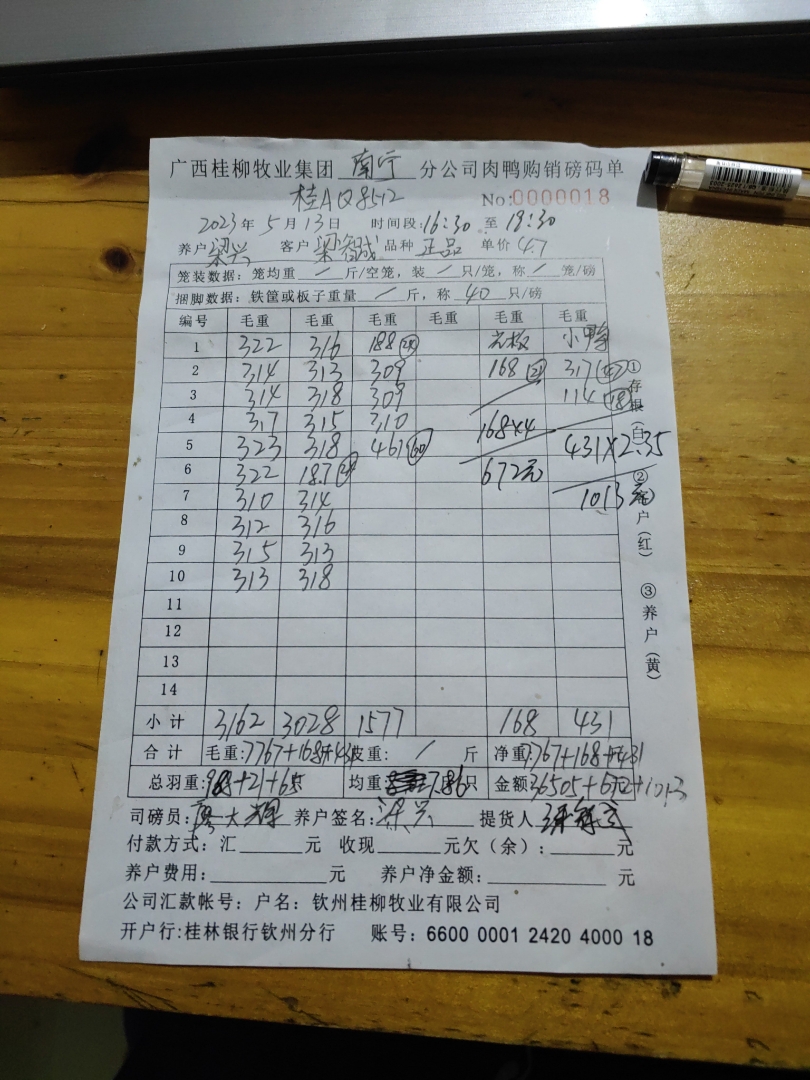 广西桂柳牧业集团 南宁 分公司肉鸭购销磅码单
桂AQ8512 No:0000018
2023年5月13日 时间段:16:30 至 18:30
养户 梁兴 客户 梁智诚 品种 正品 单价 4.7
笼装数据: 笼均重 / 斤/空笼, 装 / 只/笼, 称 / 笼/磅
捆脚数据: 铁筐或板子重量 / 斤, 称 40 只/磅
编号 毛重 毛重 毛重 毛重 毛重 毛重
1 322 316 188 小鸭
2 314 313 309 168 (21) 317 (47)
3 314 318 309 114 (18)
4 317 315 310 168×4
5 323 318 461 (60) 431×2.35
6 322 187 672元
7 310 314 1013元
8 312 316
9 315 313
10 313 318
11
12
13
14
小计 3162 3028 1577 168 431
合计 毛重:7767+168+431 皮重: / 斤 净重:7767+168+431
总羽重: +21+65 均重 7.86只 金额:36505+672+1013
司磅员: 养户签名: 梁兴 提货人
付款方式: 汇 元 收现 元欠(余): 元
养户费用: 元 养户净金额: 元
公司汇款帐号: 户名: 钦州桂柳牧业有限公司
开户行:桂林银行钦州分行 账号: 6600 0001 2420 4000 18
①存根(白)
②客户(红)
③养户(黄)